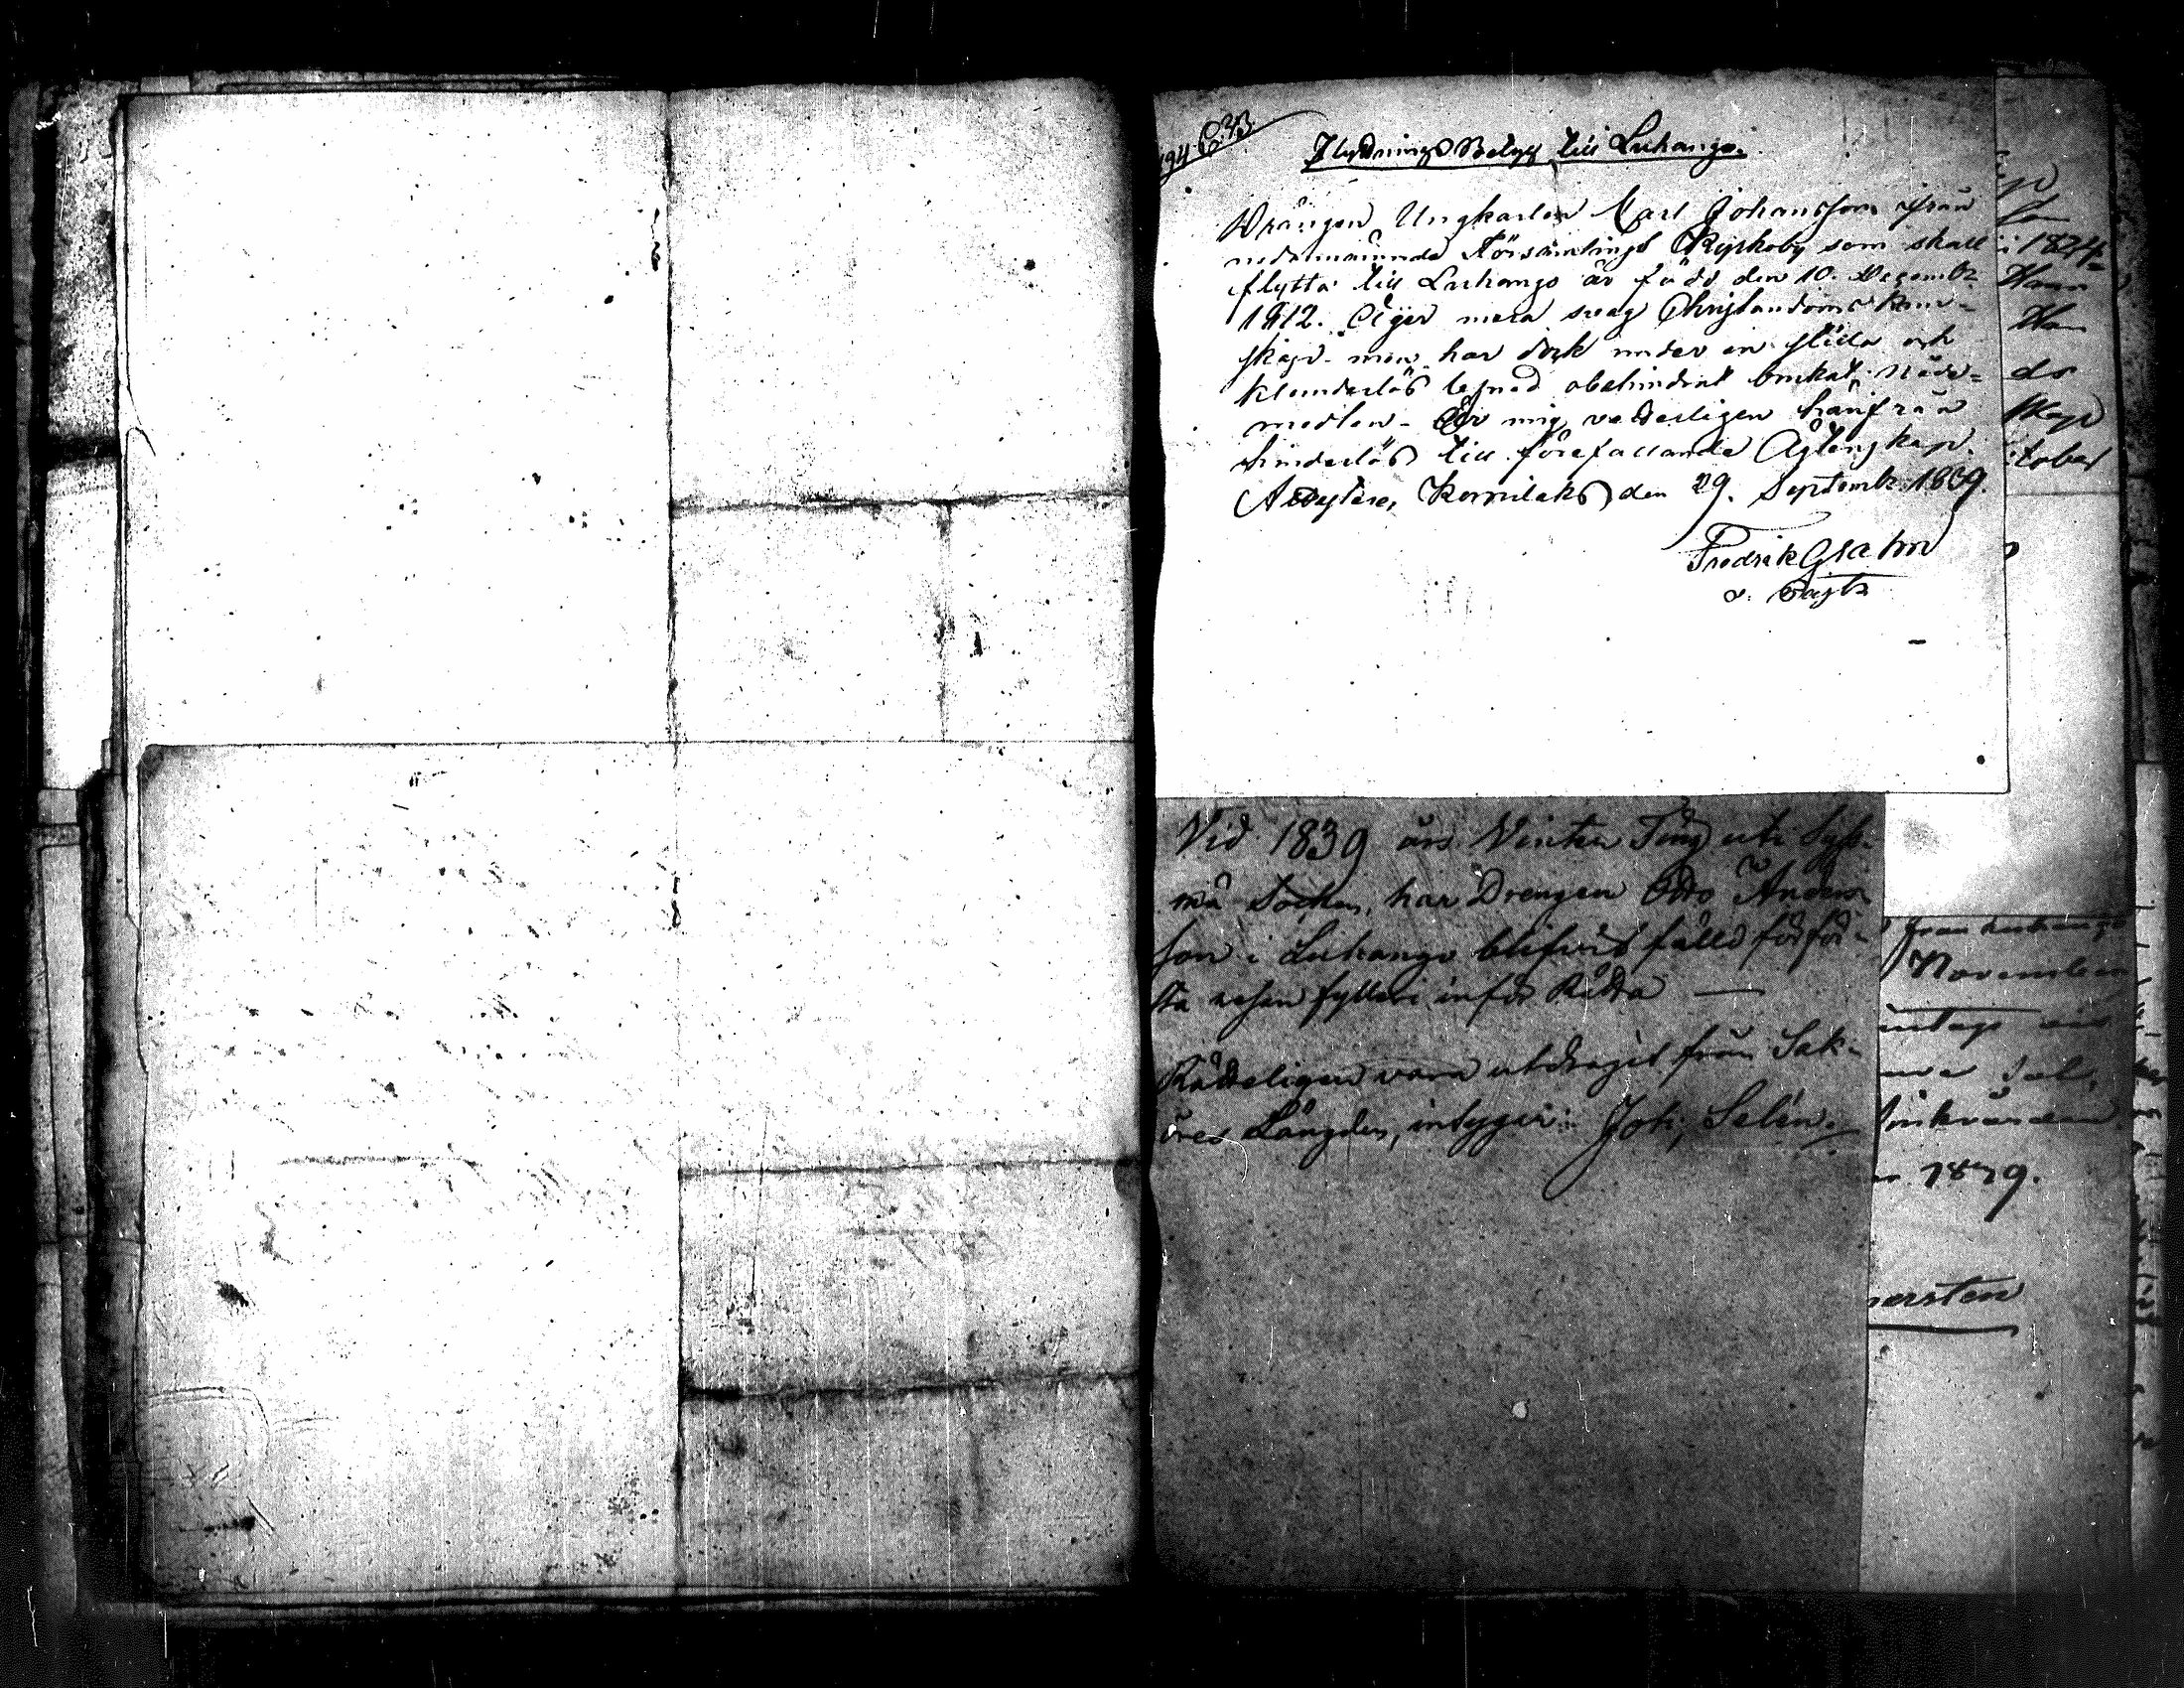 Flyttnings Betyg till Luhango.
Drängen, Ungkarlen Carl Johansson ifrån
nedannämnde Församlings Kyrkoby som skall
flytta till Luhango är född den 10. Decembr
1812. Äger mera svag Christendoms kun-
skap, men har dock under en stilla och
klanderlös lefnad obehindrat brukat nåde-
medlen. Är mig veterligen härifrån
hinderlös till förefallande Ägtenskap.
Kornilaks den 29. Septembr. 1839.
Fredrik
v. Past.
Vid 1839 års Vinter Ting uti Sys-
mä Socken, har Drengen Otto Anders-
son i Luhango blifvit fälld för för-
sta resan fylleri inför Rätta —
Rätteligen vara utdragit från Sak-
öres Längden, intygar: Joh. Selin.
i 1824
Han
ds
skap
tober
från Luhango
November
intags vid
Sal.
1839.
ersten